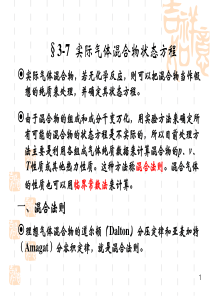 §3-7 实际气体混合物状态方程
实际气体混合物，若无化学反应，则可以把混合物当作假
想的纯质来处理，并确定其状态方程。
由于混合物的组成和成分千变万化，用实验方法来确定所
有可能的混合物的状态方程是不实际的，所以目前处理方
法主要是利用各组成气体纯质数据来计算混合物的p、v、
T性质或其他热力性质。这种方法称混合法则。混合气体
的性质也可以用临界常数法来计算。
一、混合法则
理想气体混合物的道尔顿（Dalton）分压定律和亚麦加特
（Amagat）分容积定律，就是混合法则。
1